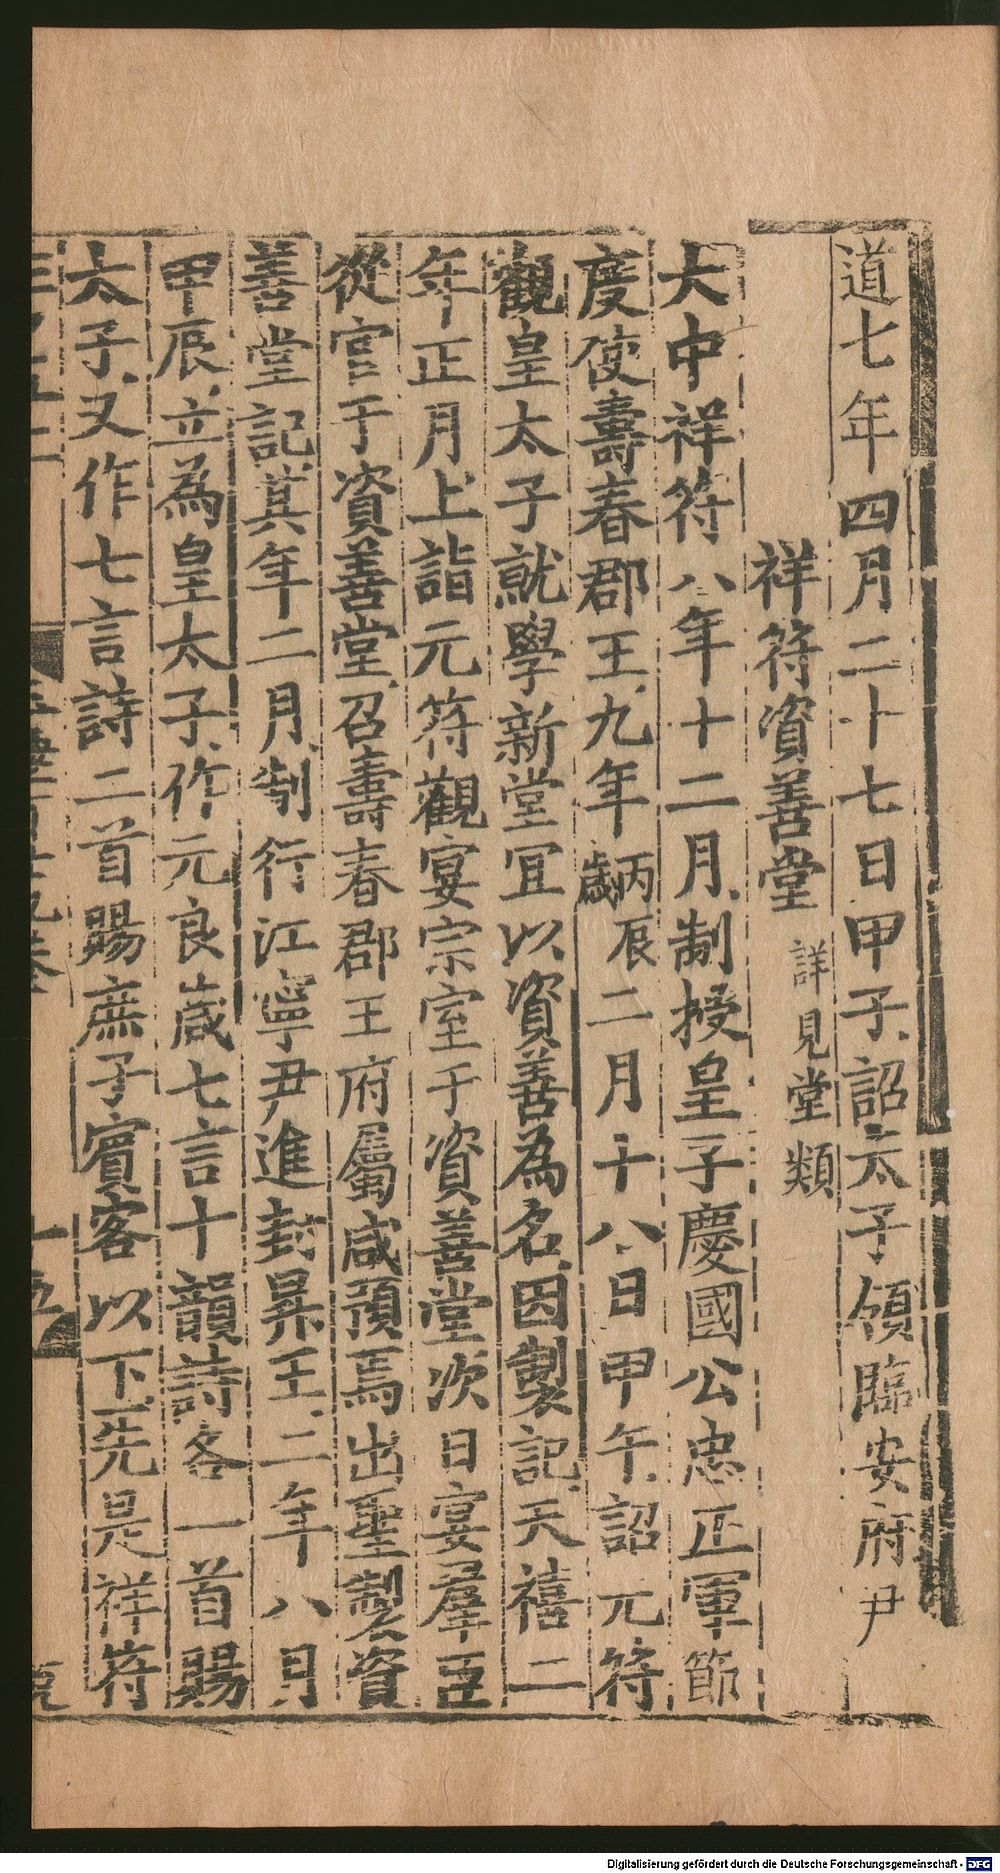 道七年四月二十七日甲子詔太子領臨安府尹
祥符資善堂 詳見堂類
大中祥符八年十二月制授皇子慶國公忠正軍節
度使壽春郡王九年歲丙辰二月十八日甲午詔元符
觀皇太子就學新堂宜以資善為名因製記天禧二
年正月上詣元符觀宴宗室于資善堂次日宴羣臣
從官于資善堂召壽春郡王府屬咸預焉出聖製資
善堂記其年二月制行江寧尹進封昇王二年八月
甲辰立為皇太子作元良箴七言十韻詩各一首賜
太子又作七言詩二首賜庶子賓客以下先是祥符
Digitalisierung gefördert durch die Deutsche Forschungsgemeinschaft - DFG